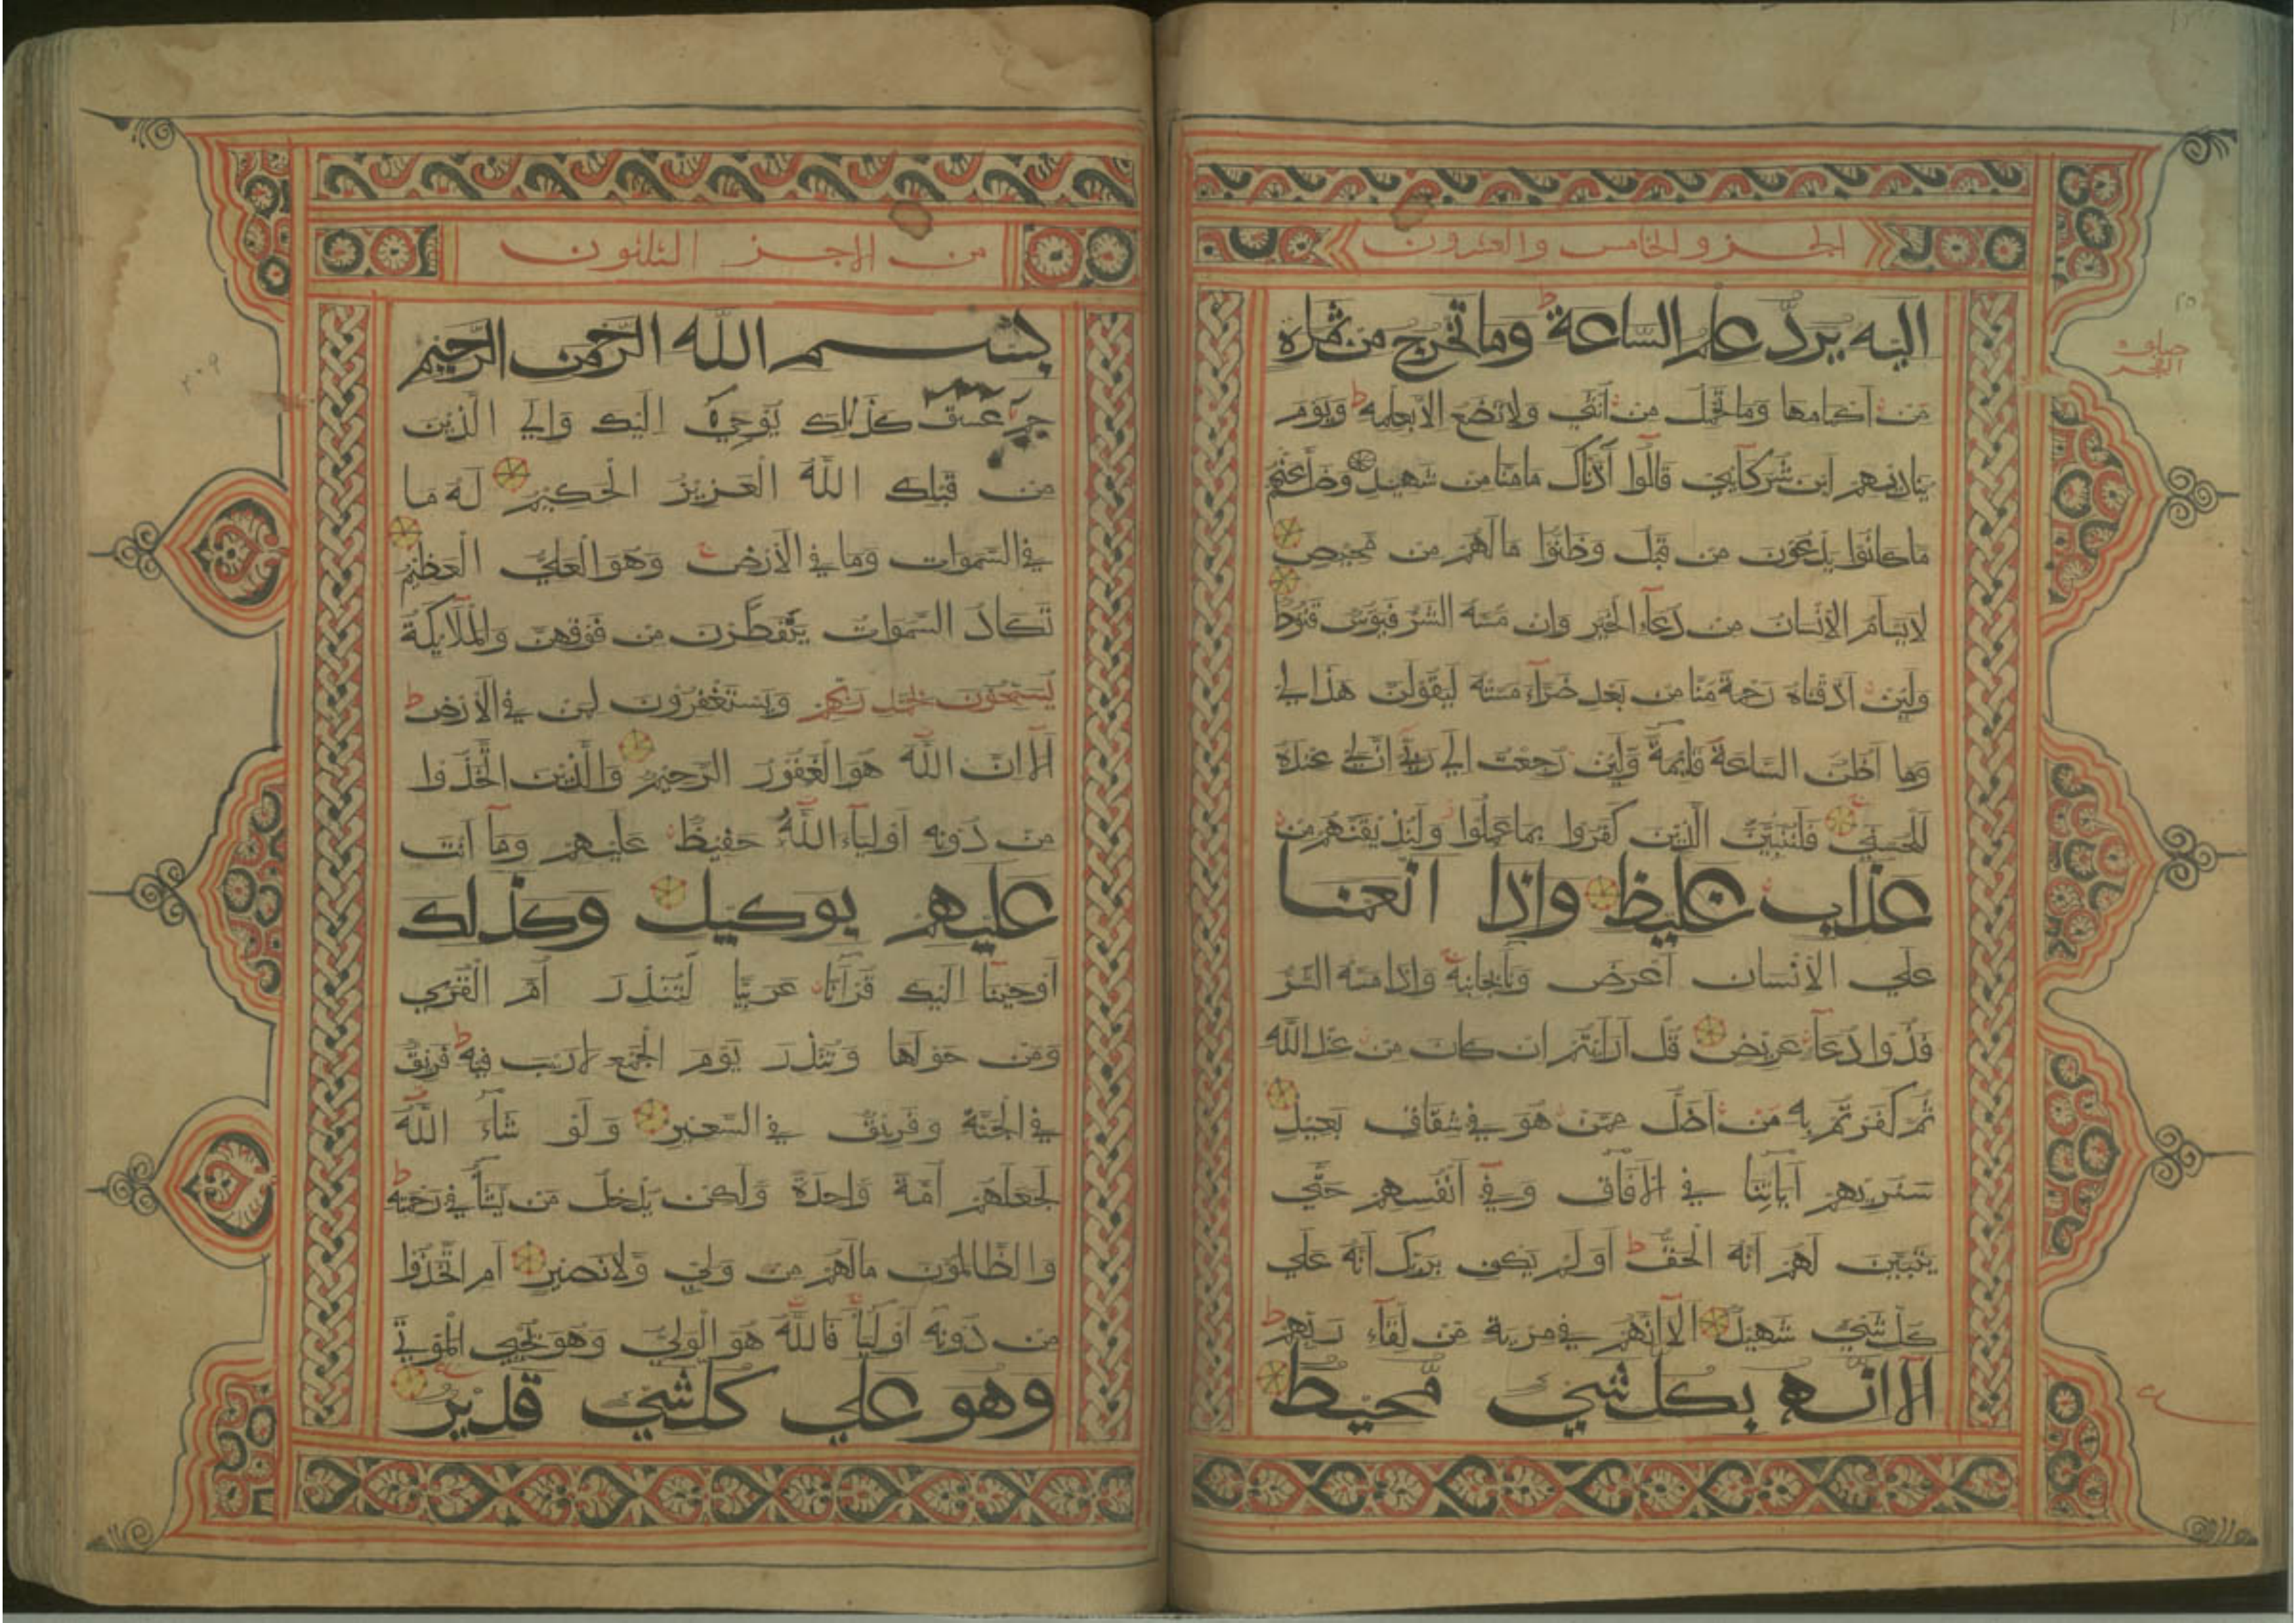 الجزو الخامس والعشرون
اليه يردّ علم السّاعة وما تخرج من ثمرة
مّن أكمامها وما تحمل من أنثي ولا تضع الا بعلمه ويوم
يناديهم اين شركآئي قالوا آذنّاك ما منّا من شهيد وضلّ عنهم
ما كانوا يدعون من قبل وظنّوا ما لهم من محيص
لا يسأم الانسان من دعآء الخير وان مّسّه الشّر فيؤس قنوط
ولئن اذقناه رحمة منّا من بعد ضرّآء مسّته ليقولنّ هذا لي
وما أظنّ السّاعة قآيمة ولئن رجعت الي ربّي انّ لي عنده
للحسني فلننبّئنّ الّذين كفروا بما عملوا ولنذيقنّهم من
عذاب غليظ واذا انعمنا
علي الانسان أعرض ونأ بجانبه واذا مسّه الشّر
فذوا دعآء عريض قل أرأيتم ان كان من عند الله
ثم كفرتم به من أضلّ ممّن هو في شقاق بعيد
سنريهم آياتنا في الافاق وفي أنفسهم حتّي
يتبيّن لهم انّه الحقّ أو لم يكف بربّك انّه علي
كلّ شيء شهيد ألا انّهم في مرية من لّقآء ربّهم
ألا انّه بكل شيء مّحيط
صلوة
الفجر
٢٥
من الاجز الثلثون
بسم الله الرّحمن الرّحيم
حم عسق كذالك يوحي اليك والي الّذين
من قبلك اللّه العزيز الحكيم له ما
في السّموات وما في الأرض وهو العليّ العظيم
تكاد السّموات يتفطّرن من فوقهنّ والملآئكة
يسبّحون بحمد ربّهم ويستغفرون لمن في الأرض
ألا انّ الله هو الغفور الرّحيم والّذين اتّخذوا
من دونه أوليآء اللّه حفيظ عليهم ومآ أنت
عليهم بوكيل وكذلك
أوحينآ اليك قرآنا عربيّا لّتنذر أمّ القري
ومن حولها وتنذر يوم الجمع لا ريب فيه فريق
في الجنّة وفريق في السّعير ولو شآء اللّه
لجعلهم أمّة واحدة ولكن يدخل من يشآء في رحمته
والظّالمون ما لهم من وليّ ولا نصير أم اتّخذوا
من دونه أوليآء فاللّه هو الوليّ وهو يحيي الموتي
وهو علي كل شيء قدير
٢٠٩